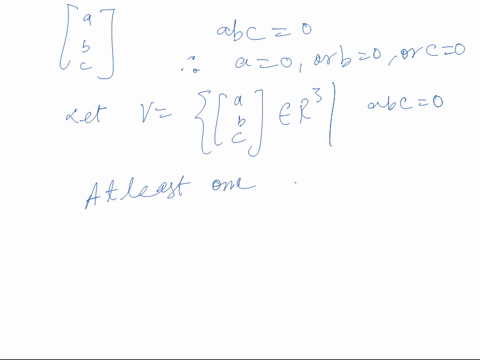 [a b c] abc = 0
∴ a=0, or b=0, or c=0
Let V = {[a b c] ∈ R³ | abc=0
At least one